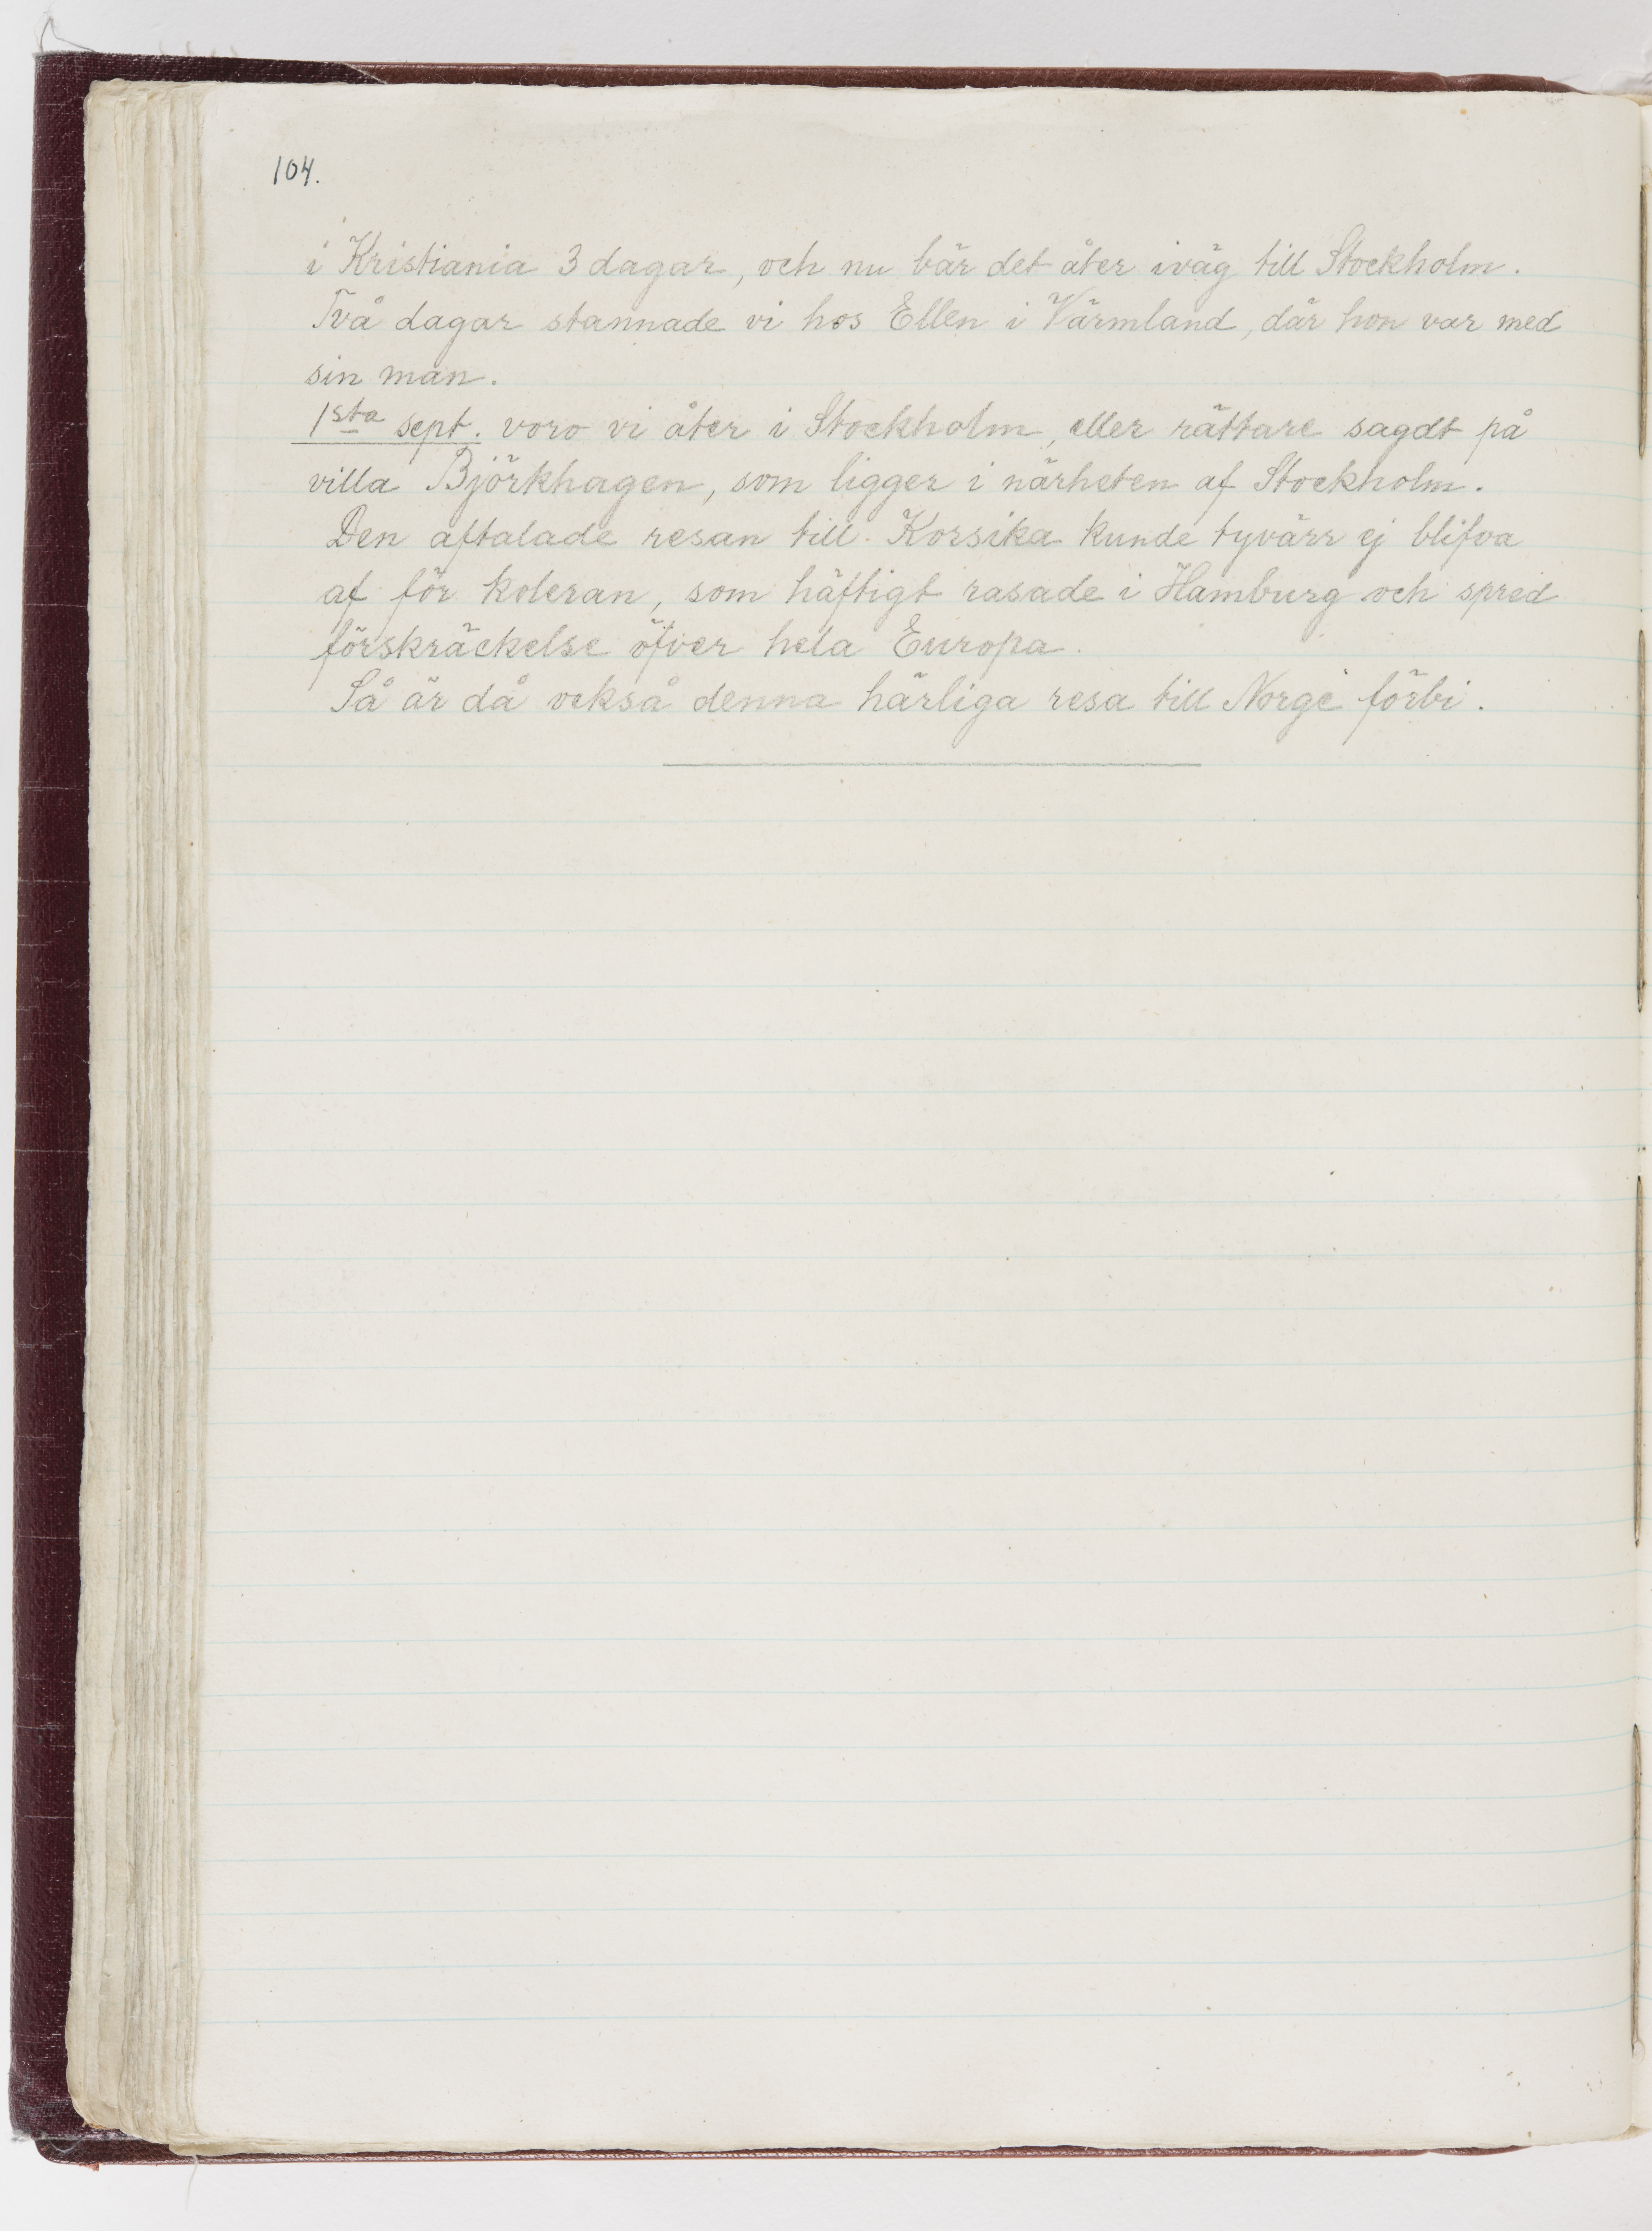 104.
i Kristiania 3 dagar, och nu bär det åter iväg till Stockholm.
Två dagar stannade vi hos Ellen i Värmland, där hon var med
sin man.
1sta sept. voro vi åter i Stockholm, eller rättare sagdt på
villa Björkhagen, som ligger i närheten af Stockholm.
Den aftalade resan till Korsika kunde tyvärr ej blifva
af för koleran, som häftigt rasade i Hamburg och spred
förskräckelse öfver hela Europa.
Så är då också denna härliga resa till Norge förbi.